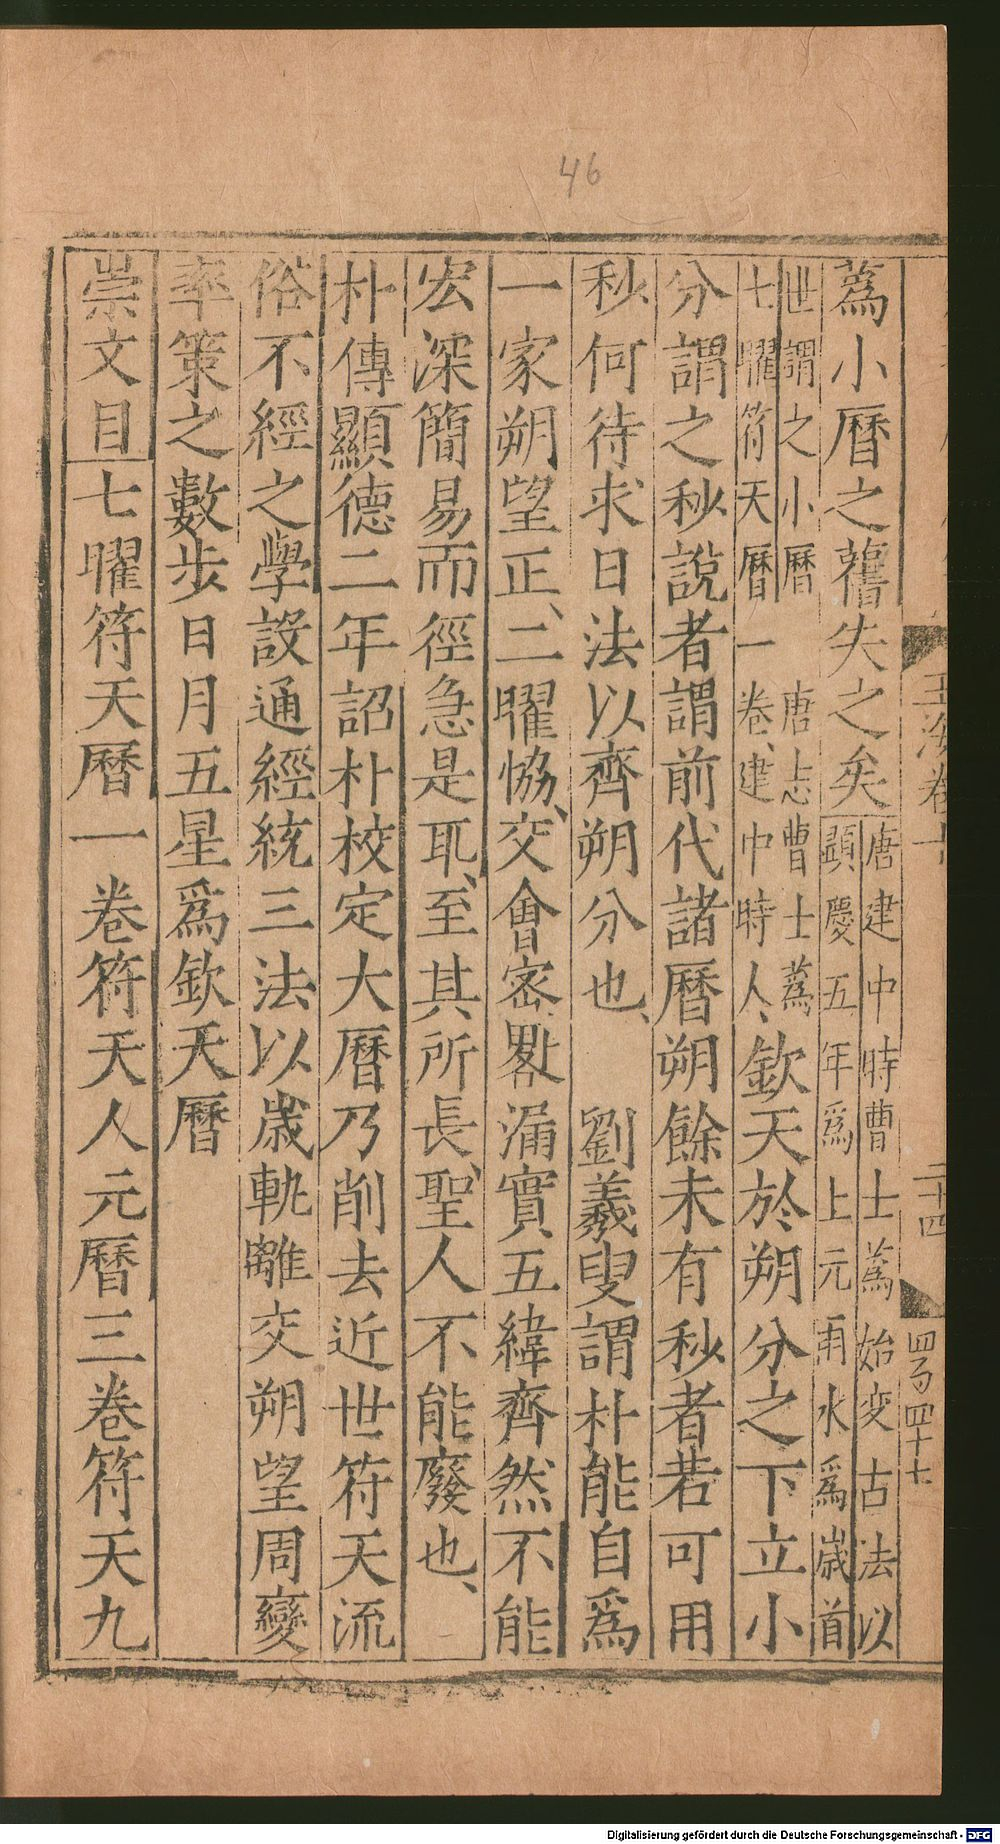 46
蔿小曆之舊失之矣唐建中時曹士蔿始変古法以
顯慶五年爲上元雨水爲歲首
世謂之小曆　唐志曹士蔿
七曜符天曆一卷建中時人欽天於朔分之下立小
分謂之秒說者謂前代諸曆朔餘未有秒者若可用
秒何待求日法以齊朔分也、　劉羲叟謂朴能自爲
一家朔望正、二曜協、交會密、漏實五緯齊然不能
宏深簡易而徑急是取、至其所長、聖人不能廢也、
朴傳顯德二年詔朴校定大曆乃削去近世符天流
俗不經之學設通經統三法以歲軌離交朔望周變
率策之數步日月五星爲欽天曆
崇文目七曜符天曆一卷符天人元曆三卷符天九
玉海卷十
二十四
四百四十七
Digitalisierung gefördert durch die Deutsche Forschungsgemeinschaft - DFG